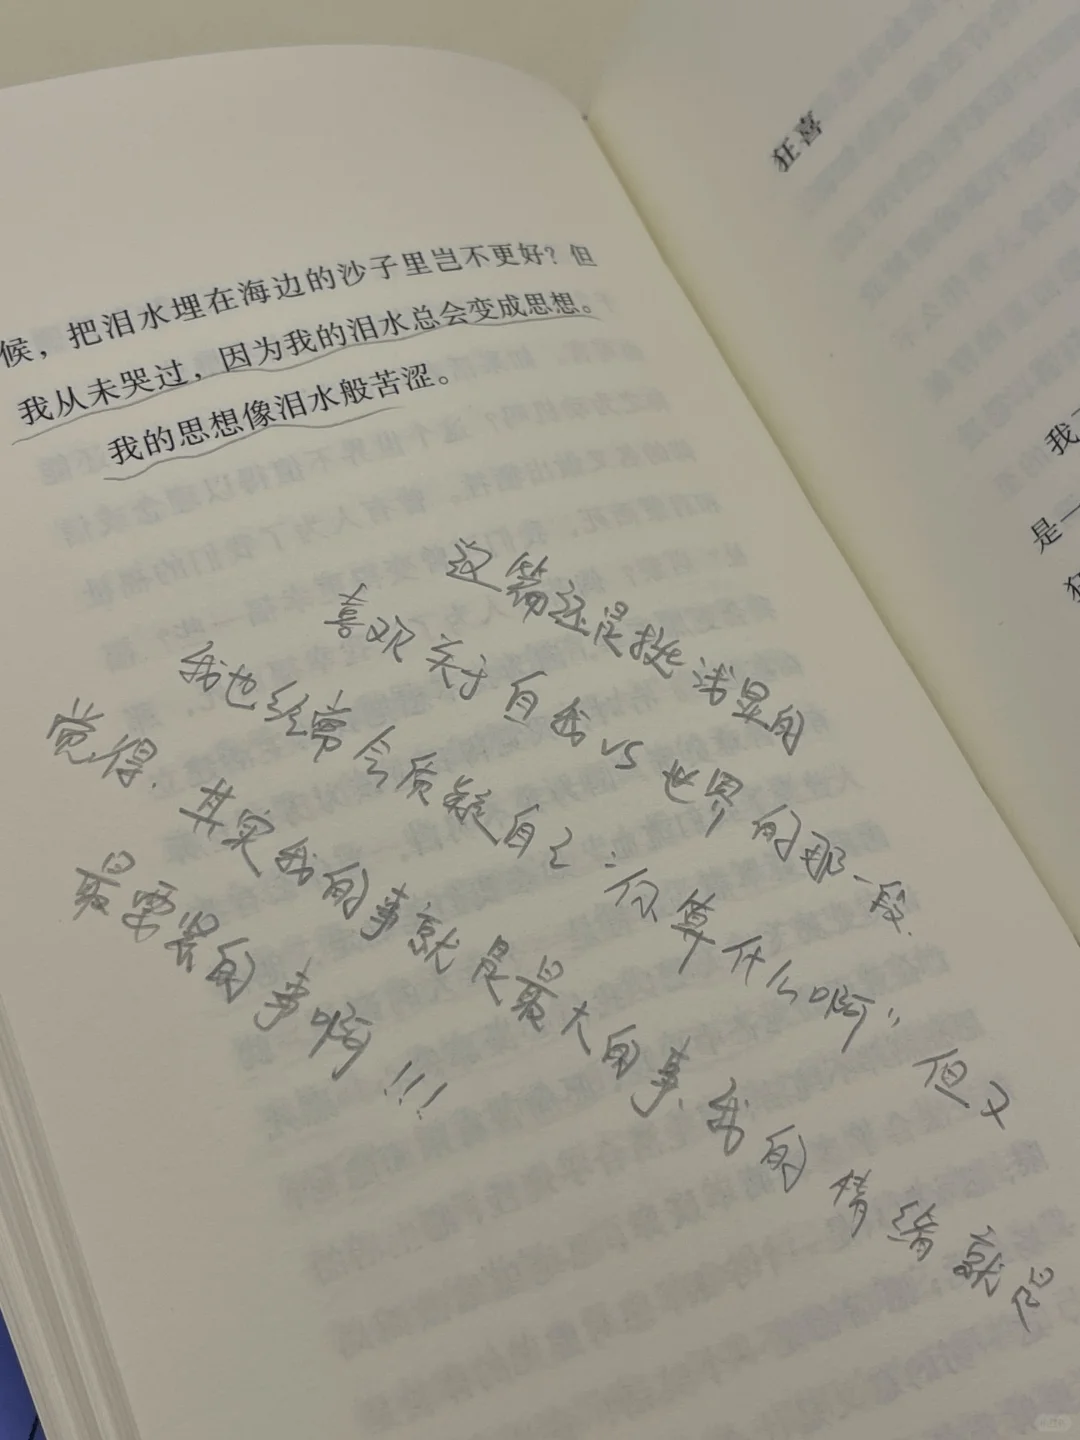 候，把泪水埋在海边的沙子里岂不更好？但
我从未哭过，因为我的泪水总会变成思想。
我的思想像泪水般苦涩。
这篇还是挺浅显的
喜欢关于自我vs世界的那一段.
我也经常会质疑自己:"何算什么啊" 但又
觉得. 其实我的事就是最大的事. 我的情绪就是
最要紧的事啊!!!
狂喜
我
是一
狂